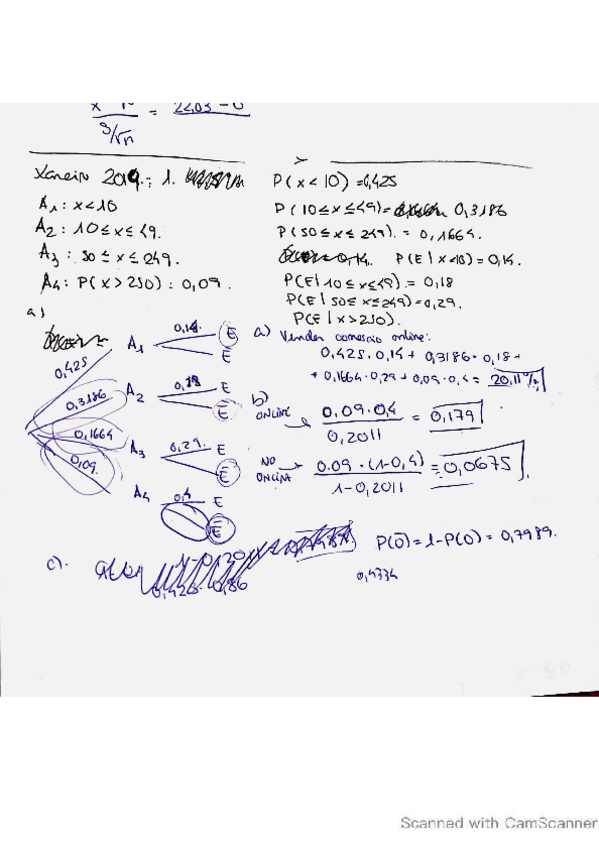 x 10 = 22,03 - 0
9/√n
Xaneiro 2019: 1.
A1: x<10
A2: 10≤x≤49.
A3: 50≤x≤249.
A4: P(x>250): 0,09.
P(x<10)=0,425
P(10≤x≤49)= 0,3186
P(50≤x≤249). = 0,1664.
P(E|x<10)=0,14.
P(E|10≤x≤49). = 0,18
P(E|50≤x≤249)=0,29.
P(E|x>250).
a)
0,425 A1 0,14. E
Ē
0,3186 A2 0,18 E
Ē
0,1664 A3 0,29. E
Ē
0,09. A4 0,4 E
Ē
a) Vender comercio online:
0,425·0,14+0,3186·0,18+
+0,1664·0,29+0,09·0,4= 20,11%
b)
ONLINE 0,09·0,4 / 0,2011 = 0,179
NO ONLINE 0.09·(1-0,4) / 1-0,2011 = 0,0675
c).
P(Ō)=1-P(O)=0,7989.
0,4334
Scanned with CamScanner